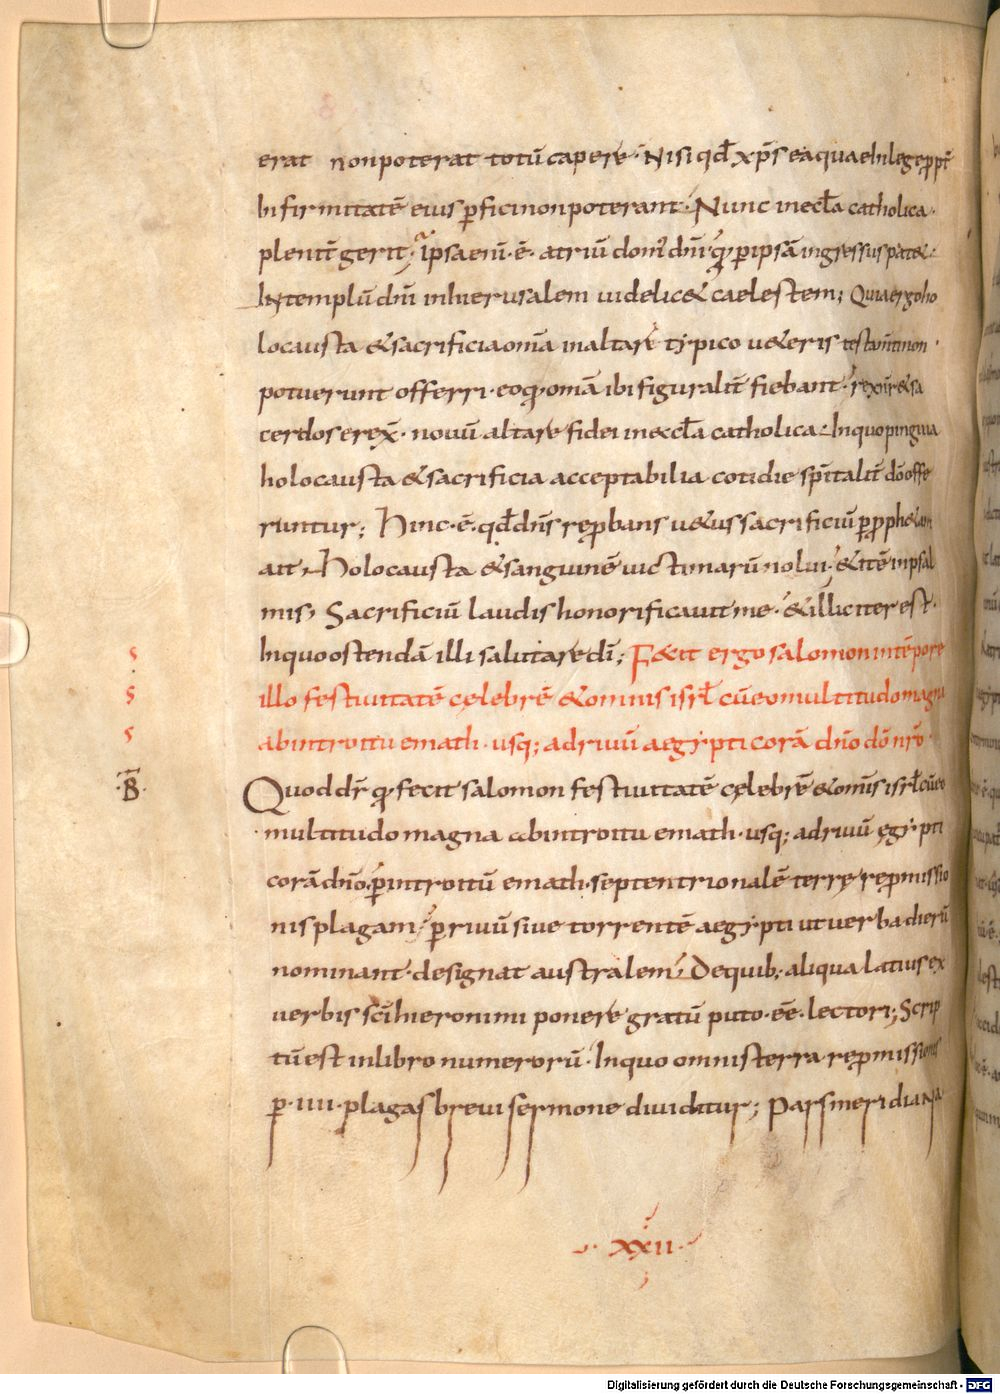 erat nonpoterat totū capere. Nisi qđ xp̄s ea quae In lege ꝓpt̄
Infirmitatē eius ꝑfici non poterant. Nunc in eccl̄a catholica.
plenit̄ gerit; Ipsa eni᷄ .ē. atriū dom' dn̄i. q̇ ꝑ ipsā ingressus pat&.
In templū dn̄i in hierusalem uidelic& caelestem; Quia ergo ho
locausta & sacrificia om̄ia in altare typico u&eris testam̄ti non
potuerunt offerri. eo qd̄ om̄ia ibi figuralit̄ fiebant. rexit & sa
cerdos erex̄. nouū altare fidei in eccl̄a catholica. In quo pinguia
holocausta & sacrificia acceptabilia cotidie sp̄italit̄ dō offe
runtur; Hinc .ē. qđ dn̄s reꝓbans u&us sacrificiū ꝑ ꝓph&am
ait. Holocausta & sanguinē uictimarū nolui. & itē in psal
mis, Sacrificiū laudis honorificauit me. & illic iter est.
In quo ostendā illi salutare dī; Fecit ergo salomon in tēpore
illo festiuitatē cęlebrē & omnis isrł cū eo multitudo magna
ab introitu emath. usq; ad riuū aegypti corā dn̄o dō nr̄o
Quod dr̄ q fecit salomon festiuitatē cęlebrē & om̄is isrł cū eo
multitudo magna ab introitu emath. usq; ad riuū ęgypti
corā dn̄o. ꝑ introitū emath. septentrionalē terrę reꝓmissio
nis plagam. ꝑ riuū siue torrentē aegypti ut uerba dierū
nominant. designat australem. De quib; aliqua latius ex
uerbis sc̄i hieronimi ponere gratū puto .eē. lectori; Scrip
tū est in libro numerorū. In quo omnis terra reꝓmissionis
ꝑ .iiii. plagas breui sermone diuiditur; Pars meridiana
s
s
s
B
xxii
Digitalisierung gefördert durch die Deutsche Forschungsgemeinschaft - DFG